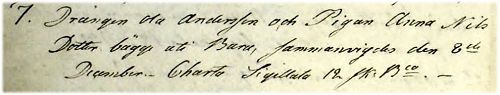 7. Drängen Ola Andersson och Pigan Anna Nils
Dotter bägge uti Bara, sammanvigdes den 8de
December. – Charta Sigillata 12 sk. Bco. –